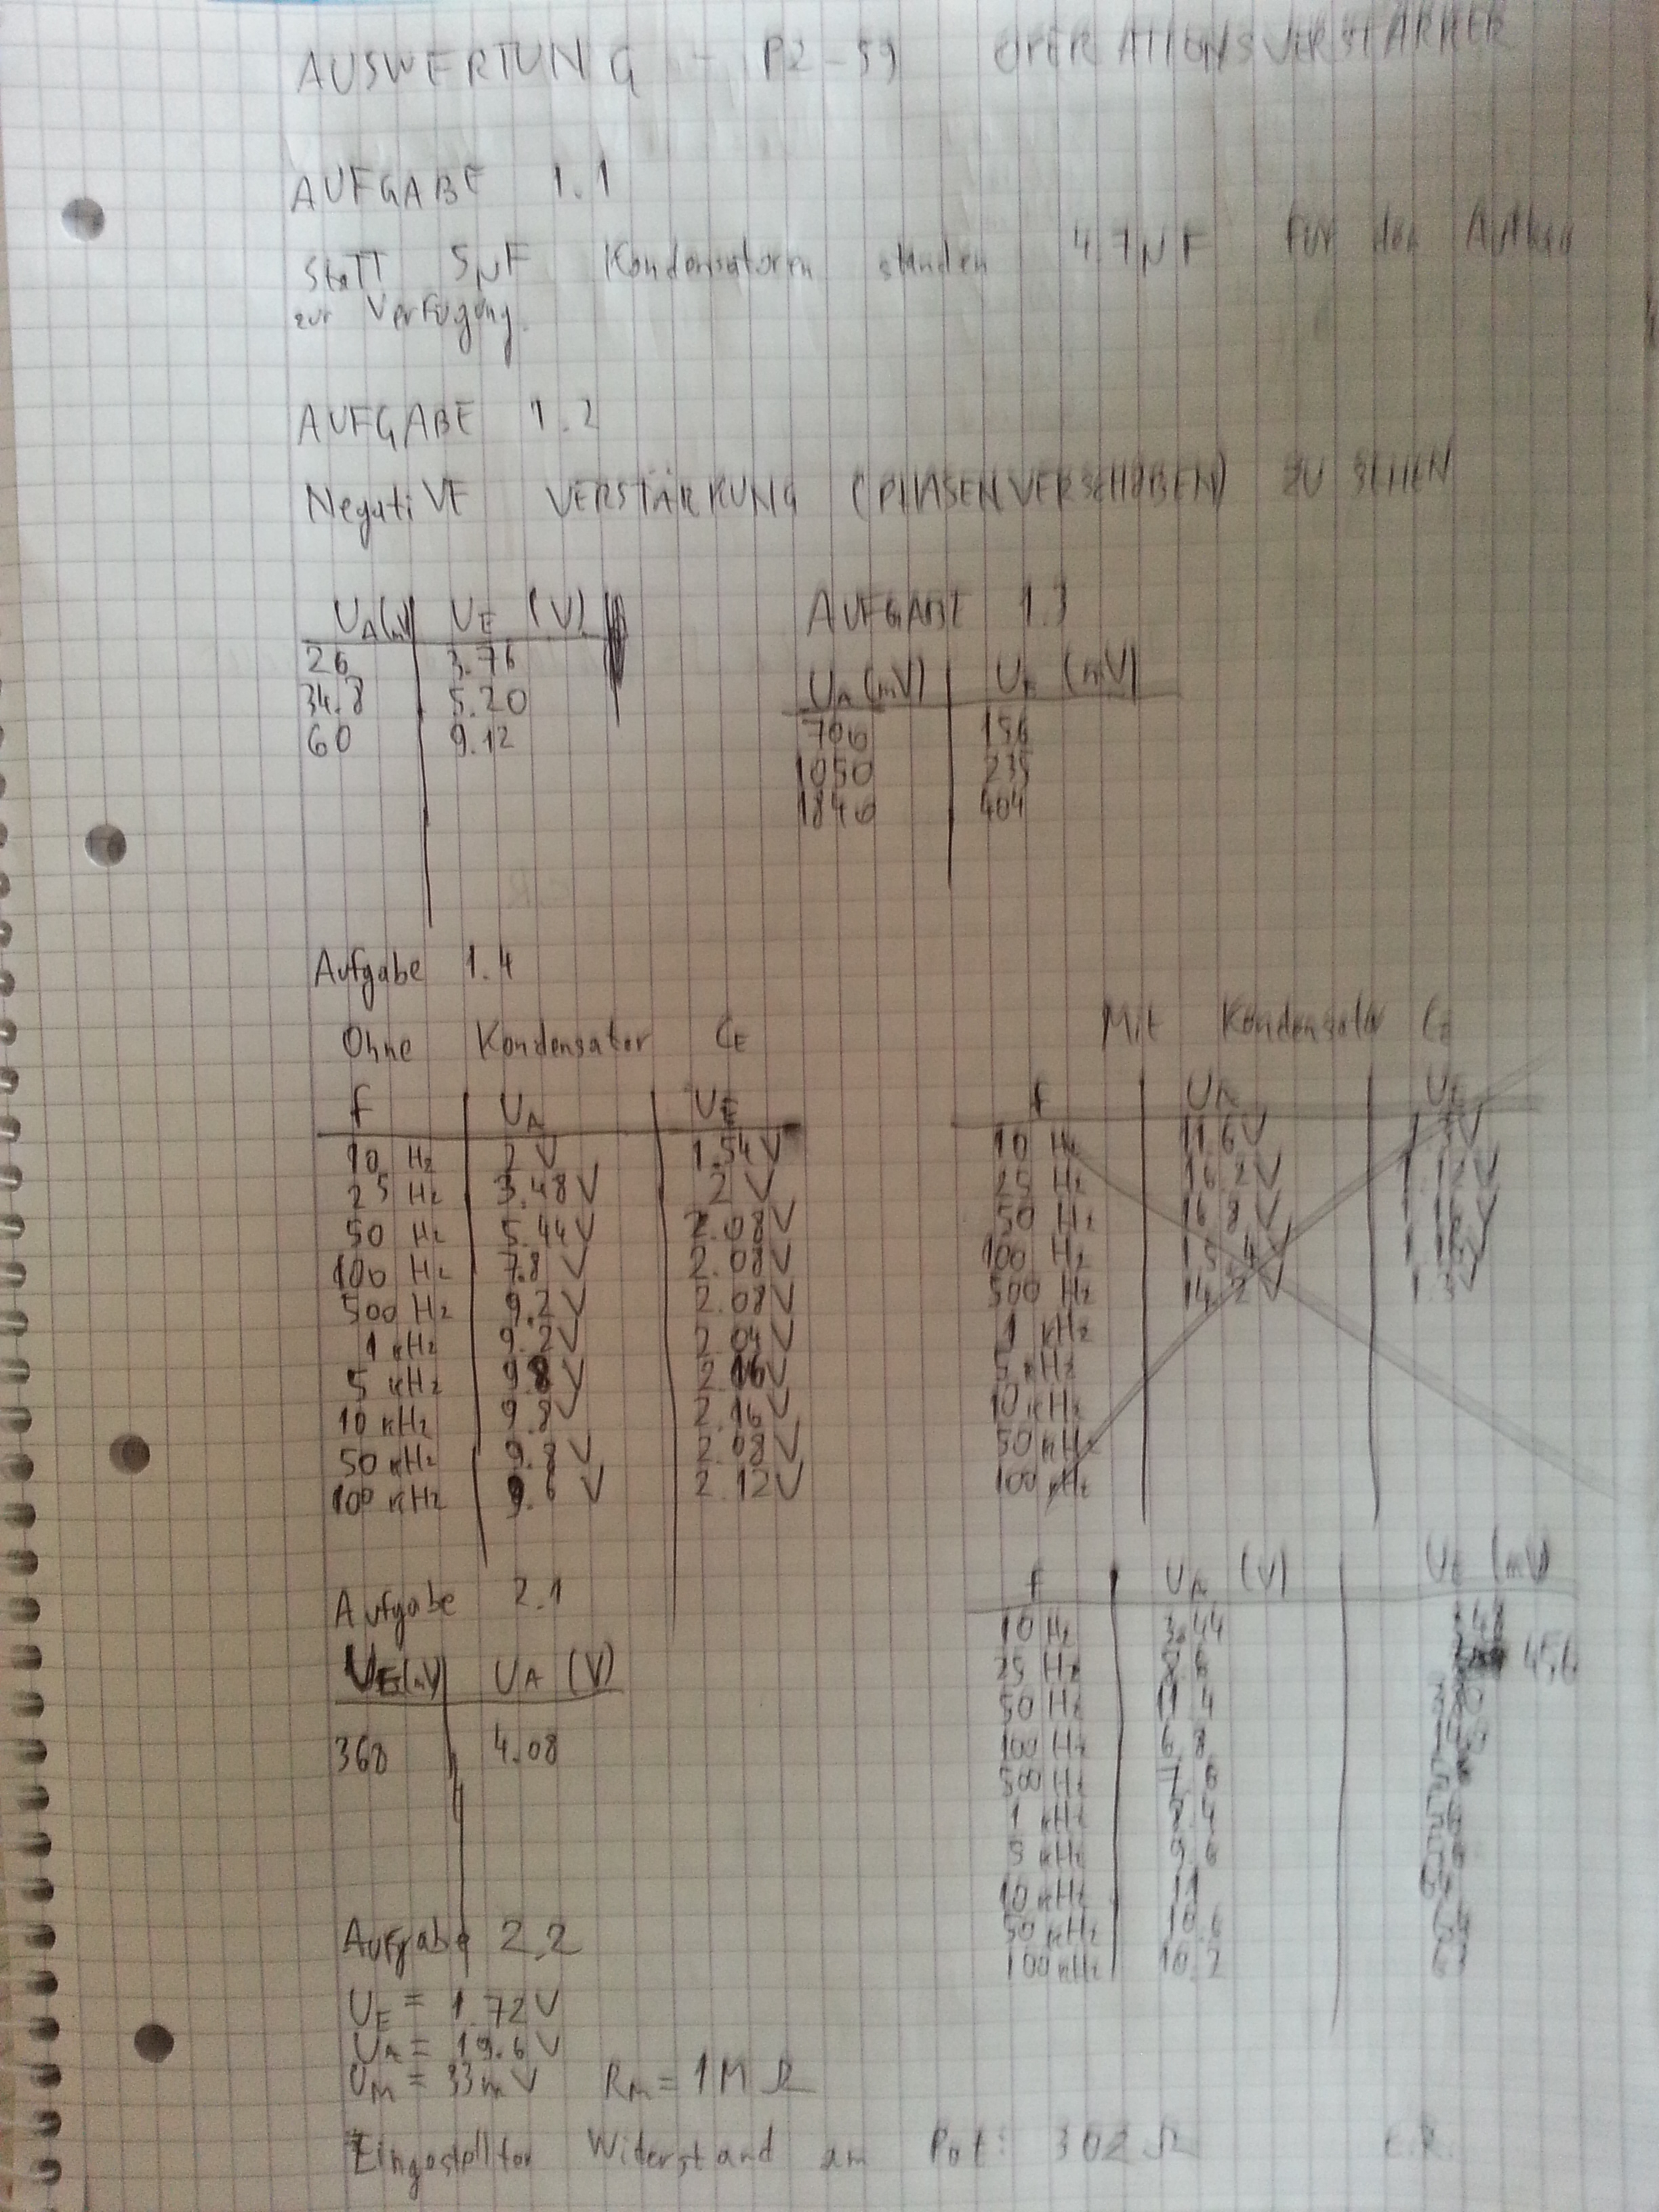 AUSWERTUNG - P2-59 OPERATIONSVERSTÄRKER
AUFGABE 1.1
StaTT 5µF Kondensatoren standen 4.7µF für den Aufbau
zur Verfügung.
AUFGABE 1.2
NegatiVE VERSTÄRKUNG (PHASENVERSCHOBEN) ZU SEHEN
U_A(mV) U_E (V)
26 3.76
34.8 5.20
60 9.12
AUFGABE 1.3
U_A (mV) U_E (mV)
700 156
1050 235
1840 404
Aufgabe 1.4
Ohne Kondensator C_E
f U_A U_E
10 Hz 2 V 1.54 V
25 Hz 3.48 V 2 V
50 Hz 5.44 V 2.08 V
100 Hz 7.8 V 2.08 V
500 Hz 9.2 V 2.08 V
1 kHz 9.2 V 2.04 V
5 kHz 9.8 V 2.16 V
10 kHz 9.8 V 2.16 V
50 kHz 9.8 V 2.08 V
100 kHz 9.6 V 2.12 V
Mit Kondensator C_E
f U_A U_E
10 Hz 11.6 V
25 Hz 16.2 V 1.12 V
50 Hz 16.8 V 1.16 V
100 Hz 15.4 V
500 Hz 14.2 V 1.3 V
1 kHz
5 kHz
10 kHz
50 kHz
100 kHz
f U_A (V) U_E (mV)
10 Hz 3.44
25 Hz 456
50 Hz 11.4
100 Hz 6.8
500 Hz 7.6
1 kHz 8.4
5 kHz 9.6
10 kHz 11
50 kHz 10.6
100 kHz 10.2
Aufgabe 2.1
U_E(mV) U_A (V)
368 4.08
Aufgabe 2.2
U_E = 1.72 V
U_A = 19.6 V
U_M = 33 mV R_M = 1 M Ω
Eingestellter Widerstand am Pot: 302 Ω C.R.